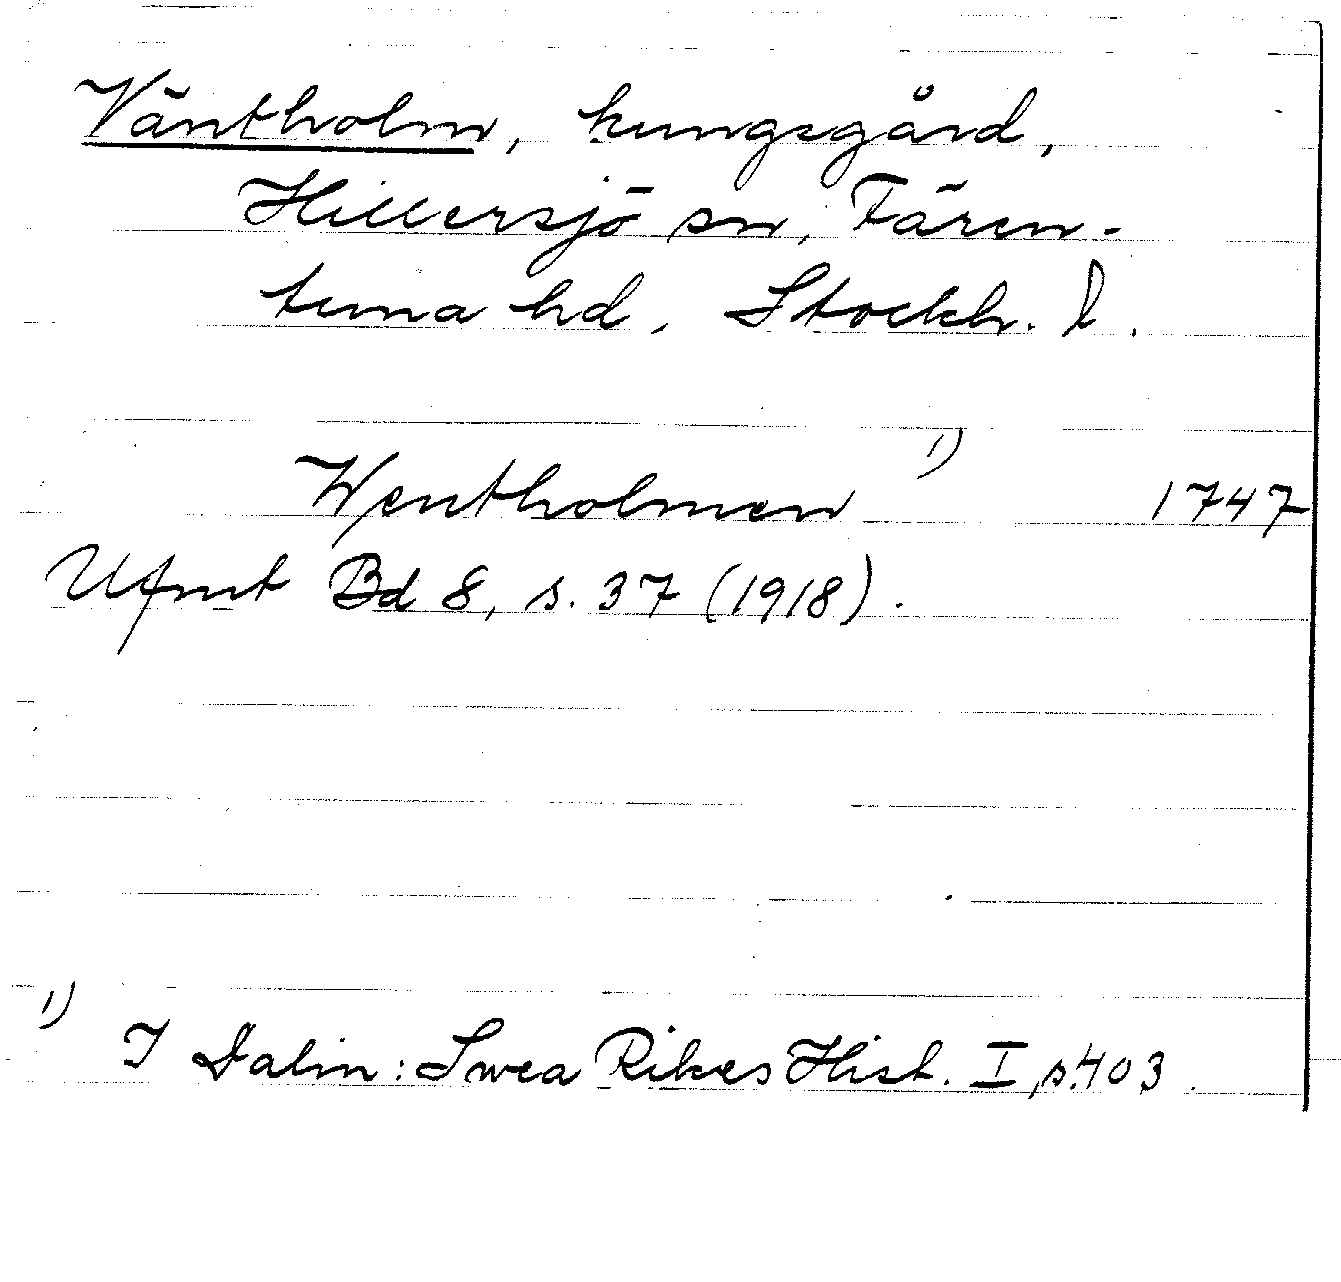 Väntholm, kungsgård,
Hillersjö sn, Fären-
tuna hd, Stockh. l.
Wentholmen 1) 1747
Ufmt Bd 8, s. 37 (1918).
1) I Dalin: Swea Rikes Hist. I, s. 403.